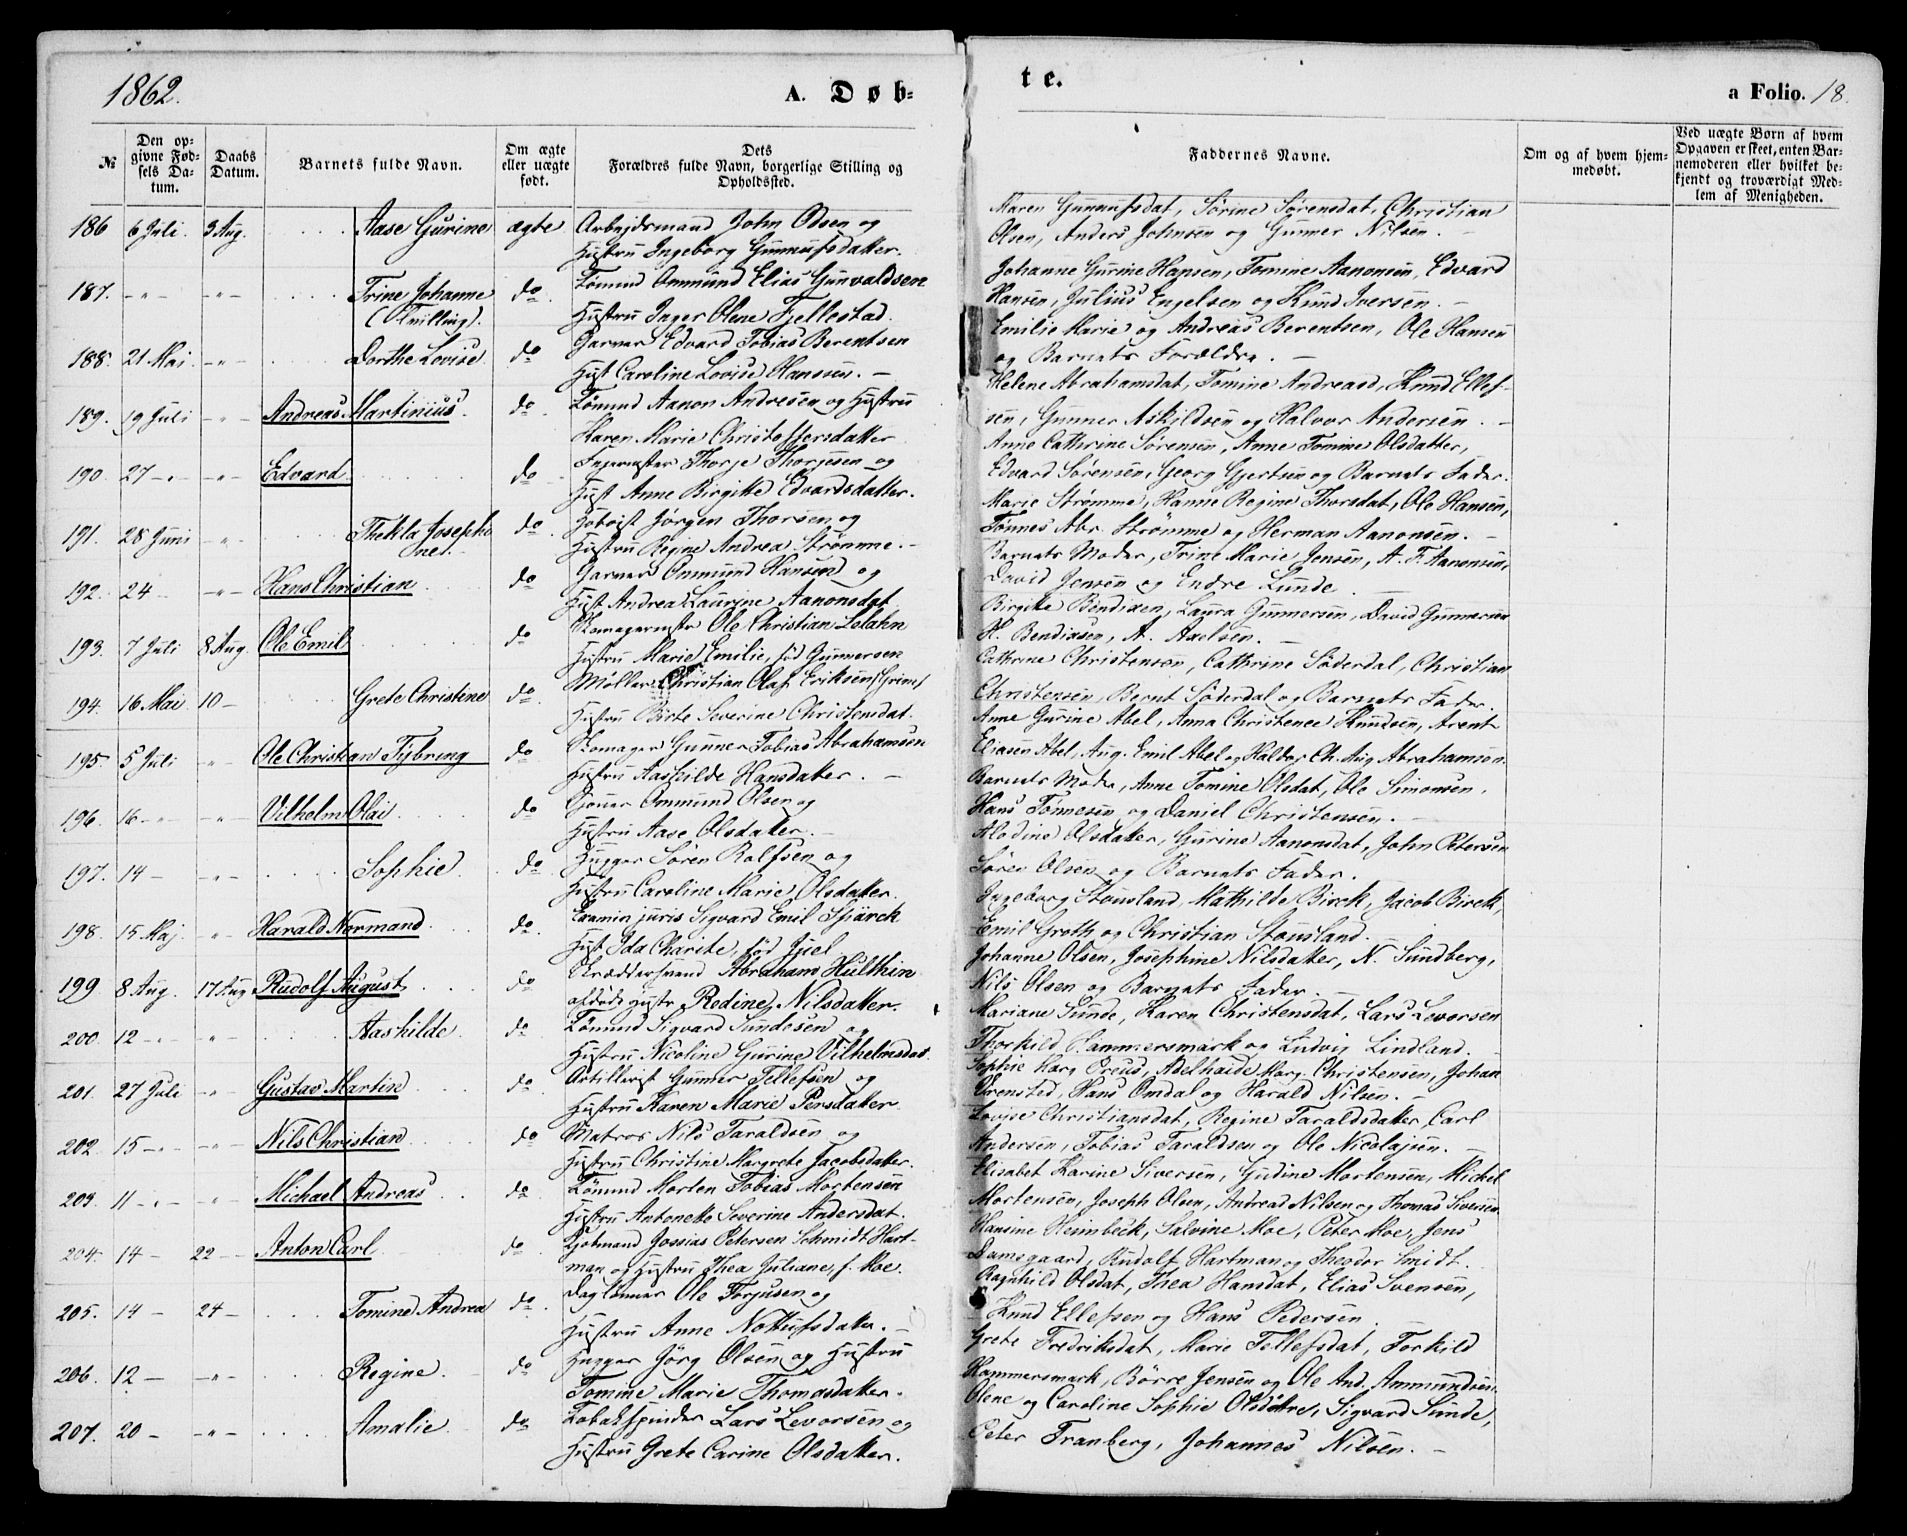 1862.
A. Døb-
te.
a Folio. 18.
№
Den op-
givne Fød-
sels Da-
tum.
Daabs
Datum.
Barnets fulde Navn.
Om ægte
eller uægte
født.
Dets
Forældres fulde Navn, borgerlige Stilling og
Opholdssted.
Faddernes Navne.
Om og af hvem hjem-
medøbt.
Ved uægte Børn af hvem
Opgaven er skeet, enten Bar-
nemoderen eller hvilket be-
kjendt og troværdigt Med-
lem af Menigheden.
186 6 Juli. 3 Aug. Aase Gurine ægte Arbejdsmand John Olsen og
Hustru Ingeborg Gunnufsdatter.
187. -"- -"- Trine Johanne do Lømand Ommund Elias Gunvaldsen
(Tvilling). Hustru Inger Olene Fjellestad.
188. 21 Mai -"- Dorthe Lovise do Garver Edvard Tobias Berentsen
Hust Caroline Lovise Hanssen. -
189. 19 Juli -"- Andreas Martinius do Lømand Aanon Andresen og Hustru
Karen Marie Christoffersdatter
190. 27 -"- -"- Edvard do Thorje Thorjesen og
Hust Anne Birgitte Edvardsdatter.
191. 28 Juni -"- Thekla Josephi- do Hoboist Jørgen Thorsen og
ne. Hustru Regine Andrea Strømme. -
192. 24 -"- Hans Christian do Garver Ommund Hansen og
Hust Andrea Laurine Aanonsdat.
193. 7 Juli 8 Aug. Ole Emil do Skomagermstr Ole Christian Lolahn
Hustru Marie Emilie, fød Gunnersen
194. 16 Mai 10 - Grete Christine do Møller Christian Olaf Eriksen (Grim)
Hustru Birte Severine Christensdat.
195. 5 Juli -"- Ole Christian Tybring do Skomager Gunner Tobias Abrahamsen
Hustru Aashilde Hansdatter. -
196. 16 -"- -"- Vilhelm Olai do Ommund Olsen og
Hustru Aase Olsdatter. -
197. 14 - -"- Sophie do Hugger Søren Rolfsen og
Hustru Caroline Marie Olsdatter.
198. 15 Maj. -"- Harald Normand do Examin juris Sigvard Emil Stjärck
Hust Ida Charite, fød Gjel
199 8 Aug. 17 Aug Rudolf August do Skræddersvend Abraham Hulthin
afdøde Hustr Redine Nilsdatter.
200. 12 -"- -"- Aashilde do Lømand Sigvard Sundesen og
Hustru Nicoline Gurine Vilhelmsdat.
201. 27 Juli -"- Gustav Martin do Artillerist Gunner Tellefsen og
Hustru Karen Marie Persdatter
202. 15 -"- -"- Nils Christian do Matros Nils Taraldsen og
Hustru Christine Margrete Jacobsdatter.
203. 11 -"- -"- Michael Andreas do Lømand Morten Tobias Mortensen
Hustru Antonette Severine Andersdat.
204. 14 - 22 - Anton Carl do Kjøbmand Jossias Petersen Schmidt Hart-
man og Hustru Thea Juliane, f. Moe.
205. 14 - 24 - Tomine Andrea do Daglønner Ole Torjusen og
Hustru Anne Nottufsdatter. -
206. 12 - -"- Regine. do Hugger Jörg Olsen og Hustru
Tomine Marie Thomasdatter.
207. 20 - -"- Amalie do Tobakspinder Lars Levorsen og
Hustru Grete Carine Olsdatter.
Maren Gunnufsdat, Sørine Sørensdat, Christian
Olsen, Anders Johnsen og Gunner Nilsen. -
Johanne Gurine Hansen, Tomine Aanonsen, Edvard
Hansen, Julius Engelsen og Knud Iversen. -
Emilie Marie og Andreas Berentsen, Ole Hansen
og Barnets Forældre. -
Helene Abrahamsdat, Tomine Andreasd, Knud Ellef-
sen, Gunner Askildsen og Halvor Andersen. -
Anne Cathrine Sørensen, Anne Tomine Olsdatter,
Edvard Sørensen, Georg Gjertsen og Barnets Fader.
Marie Strømme, Hanne Regine Thorsdat, Ole Hansen,
Tønnes Abr. Strømme og Herman Aanonsen. -
Barnets Moder, Trine Marie Jensen, A. F. Aanonsen,
David Jensen og Endre Lunde. -
Birgitte Bendixen, Laura Gunnersen, David Gunnersen
H. Bendixen, A. Axelsen. -
Cathrine Christensen, Cathrine Söderdal, Christian
Christensen, Bernt Söderdal og Barnets Fader.
Anne Gurine Abel, Anna Christence Knudsen, Arent
Eliasen Abel, Aug. Emil Abel og Haldor Ch. Aug Abrahamsen.
Barnets Moder, Anne Tomine Olsdat, Ole Simonsen.
Hans Tønnesen og Daniel Christensen. -
Alodine Olsdatter, Gurine Aanonsdat, John Petersen
Søren Olsen og Barnets Fader. -
Ingeborg Stousland, Mathilde Birck, Jacob Birck,
Emil Groth og Christian Stousland. -
Johanne Olsen, Josephine Nilsdatter, N. Sundberg,
Nils Olsen og Barnets Fader. -
Mariane Sunde, Karen Christensdat, Lars Levorsen
Thorkild Hammersmark og Ludvig Lindland. -
Sophie Marg. Preus, Adelhaide Marg. Christensen, Johan
Ørensted, Hans Omdal og Harald Nilsen. -
Lovise Christiansdat, Regine Taraldsdatter, Carl
Andersen, Tobias Taraldsen og Ole Nicolajsen. -
Elisabet Karine Siversen, Gudine Mortensen, Mickel
Mortensen, Joseph Olsen, Andreas Nilsen og Thomas Siversen
Hansine Heimbeck, Salvine Moe, Peter Moe, Jens
Damsgaard, Rudolf Hartman og Theodor Smidt.
Ragnhild Olsdat, Thea Hansdat, Elias Svensen,
Knud Ellefsen og Hans Pedersen.
Grete Fredriksdat, Marie Tellefsdat, Torkild
Hammersmark, Börre Jensen og Ole And. Ammundsen.
Olene og Caroline Sophie Olsdøtre, Sigvard Sunde,
Peter Tranberg, Johannes Nilsen. -